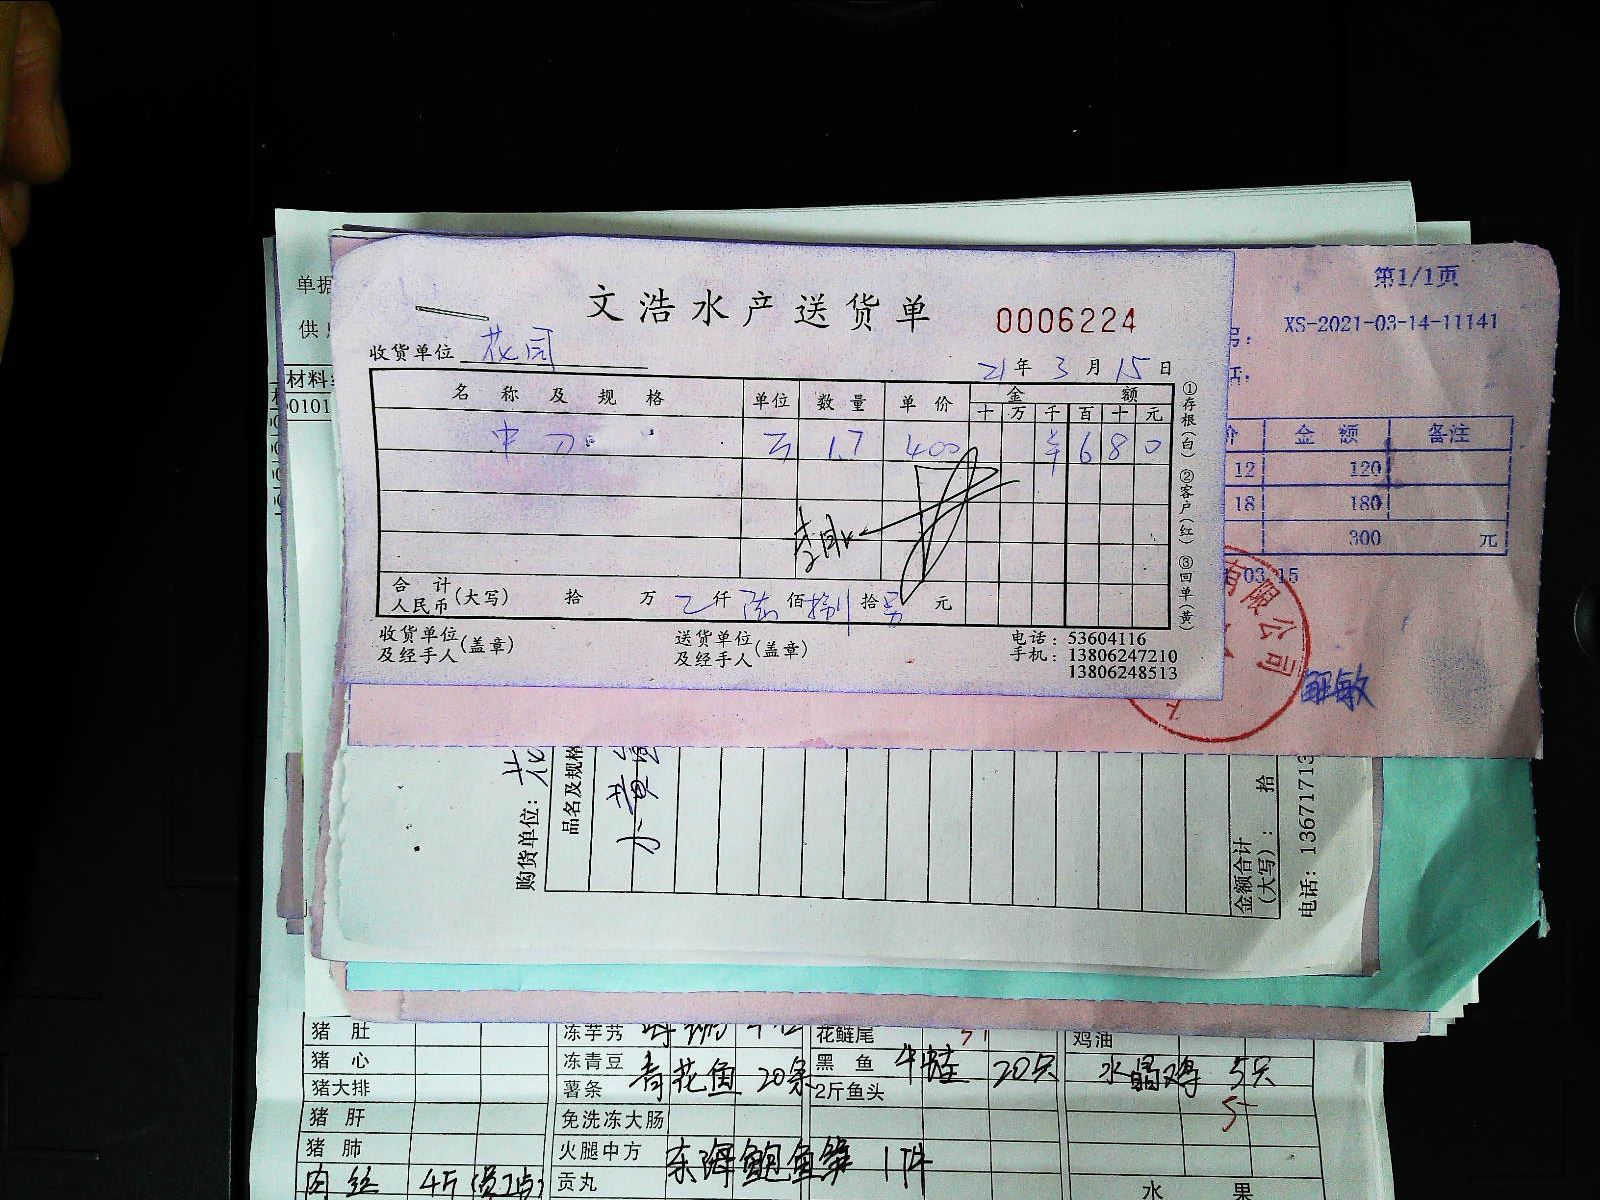 文浩水产送货单 0006224
收货单位 花园
21年3月15日
名称及规格 单位 数量 单价 金额
十 万 千 百 十 元
中刀 1.7 400 ¥ 6 8 0
合计 人民币(大写) 拾 万 仟 陆佰捌拾 元
收货单位及经手人(盖章) 送货单位及经手人(盖章)
电话：53604116
手机：13806247210
13806248513
①存根(白) ②客户(红) ③回单(黄)
第1/1页
XS-2021-03-14-11141
价 金额 备注
12 120
18 180
300 元
03 15
有限公司
单据
供
材料
0101
购货单位：花
品名及规格
金额合计(大写)： 拾
电话：13671713
猪肚 冻芋艿 花鲢尾 鸡油
猪心 冻青豆 青花鱼 20条 黑鱼 牛蛙 20只 水晶鸡 5只
猪大排 薯条 2斤鱼头
猪肝 免洗冻大肠
猪肺 火腿中方 1件
肉丝 4斤 贡丸
水果